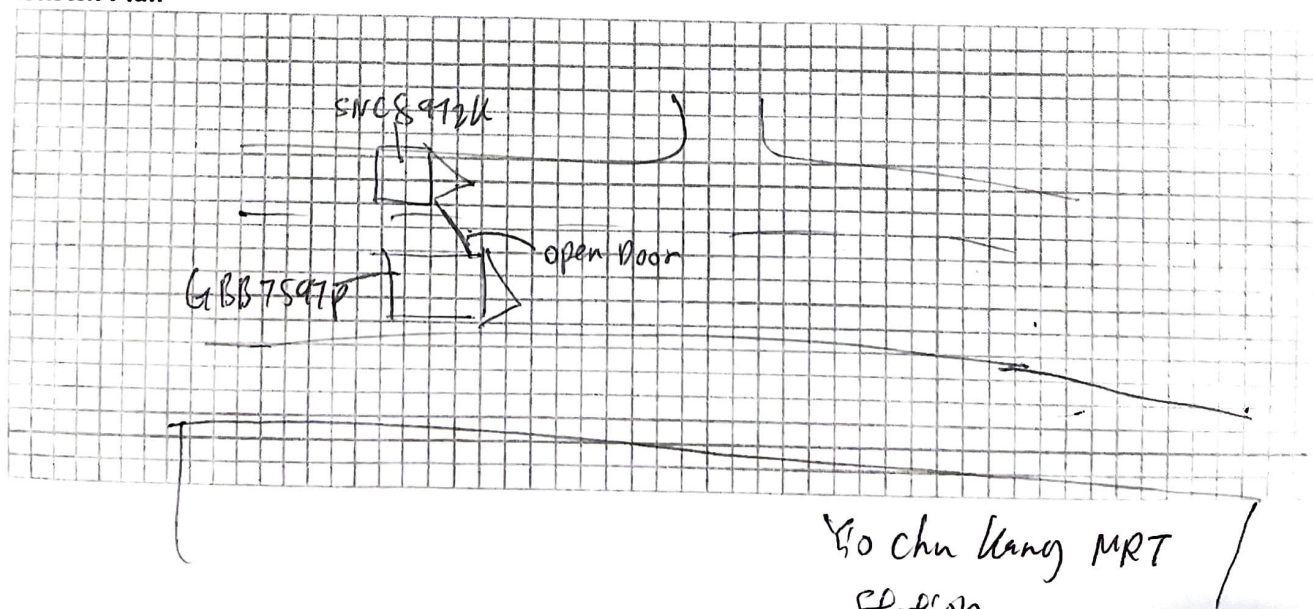 SNC8972K
open Door
GBB7597P
Yio Chu Kang MRT
Station